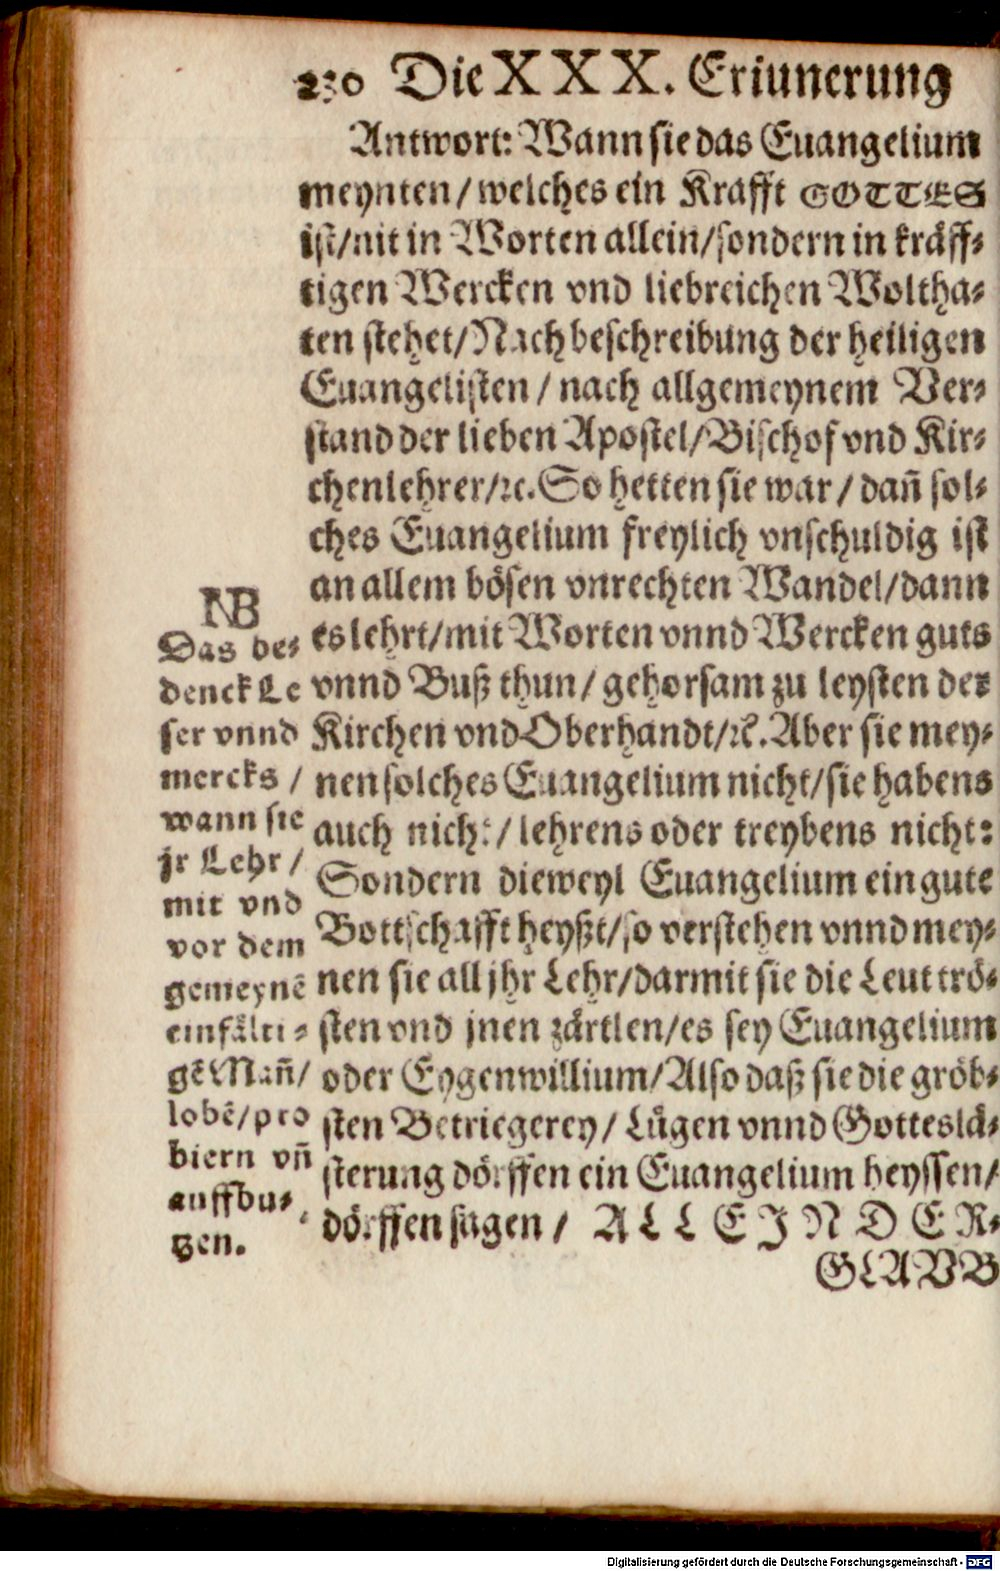 230 Die XXX. Eriunerung
Antwort: Wann sie das Euangelium
meynten / welches ein Krafft GOTTES
ist/nit in Worten allein/sondern in kräff⸗
tigen Wercken vnd liebreichen Woltha⸗
ten stehet/Nach beschreibung der heiligen
Euangelisten / nach allgemeynem Ver⸗
stand der lieben Apostel/Bischof vnd Kir⸗
chenlehrer/ꝛc. So hetten sie war / dañ sol⸗
ches Euangelium freylich vnschuldig ist
an allem bösen vnrechten Wandel/dann
es lehrt/mit Worten vnnd Wercken guts
vnnd Buß thun / gehorsam zu leysten der
Kirchen vnd Oberhandt/ꝛc. Aber sie mey⸗
nen solches Euangelium nicht/sie habens
auch nicht / lehrens oder treybens nicht:
Sondern dieweyl Euangelium ein gute
Bottschafft heyßt/so verstehen vnnd mey⸗
nen sie all jhr Lehr/darmit sie die Leut trö⸗
sten vnd jnen zärtlen/es sey Euangelium
oder Eygenwillium/Also daß sie die gröb⸗
sten Betriegerey / Lügen vnnd Gotteslä⸗
sterung dörffen ein Euangelium heyssen/
dörffen sagen / ALLEIN DER⸗
GLAVB
NB
Das be⸗
denck Le
ser vnnd
mercks /
wann sie
jr Lehr /
mit vnd
vor dem
gemeynē
einfälti⸗
gē Mañ/
lobē/pro
biern vñ
auffbu⸗
tzen.
Digitalisierung gefördert durch die Deutsche Forschungsgemeinschaft - DFG